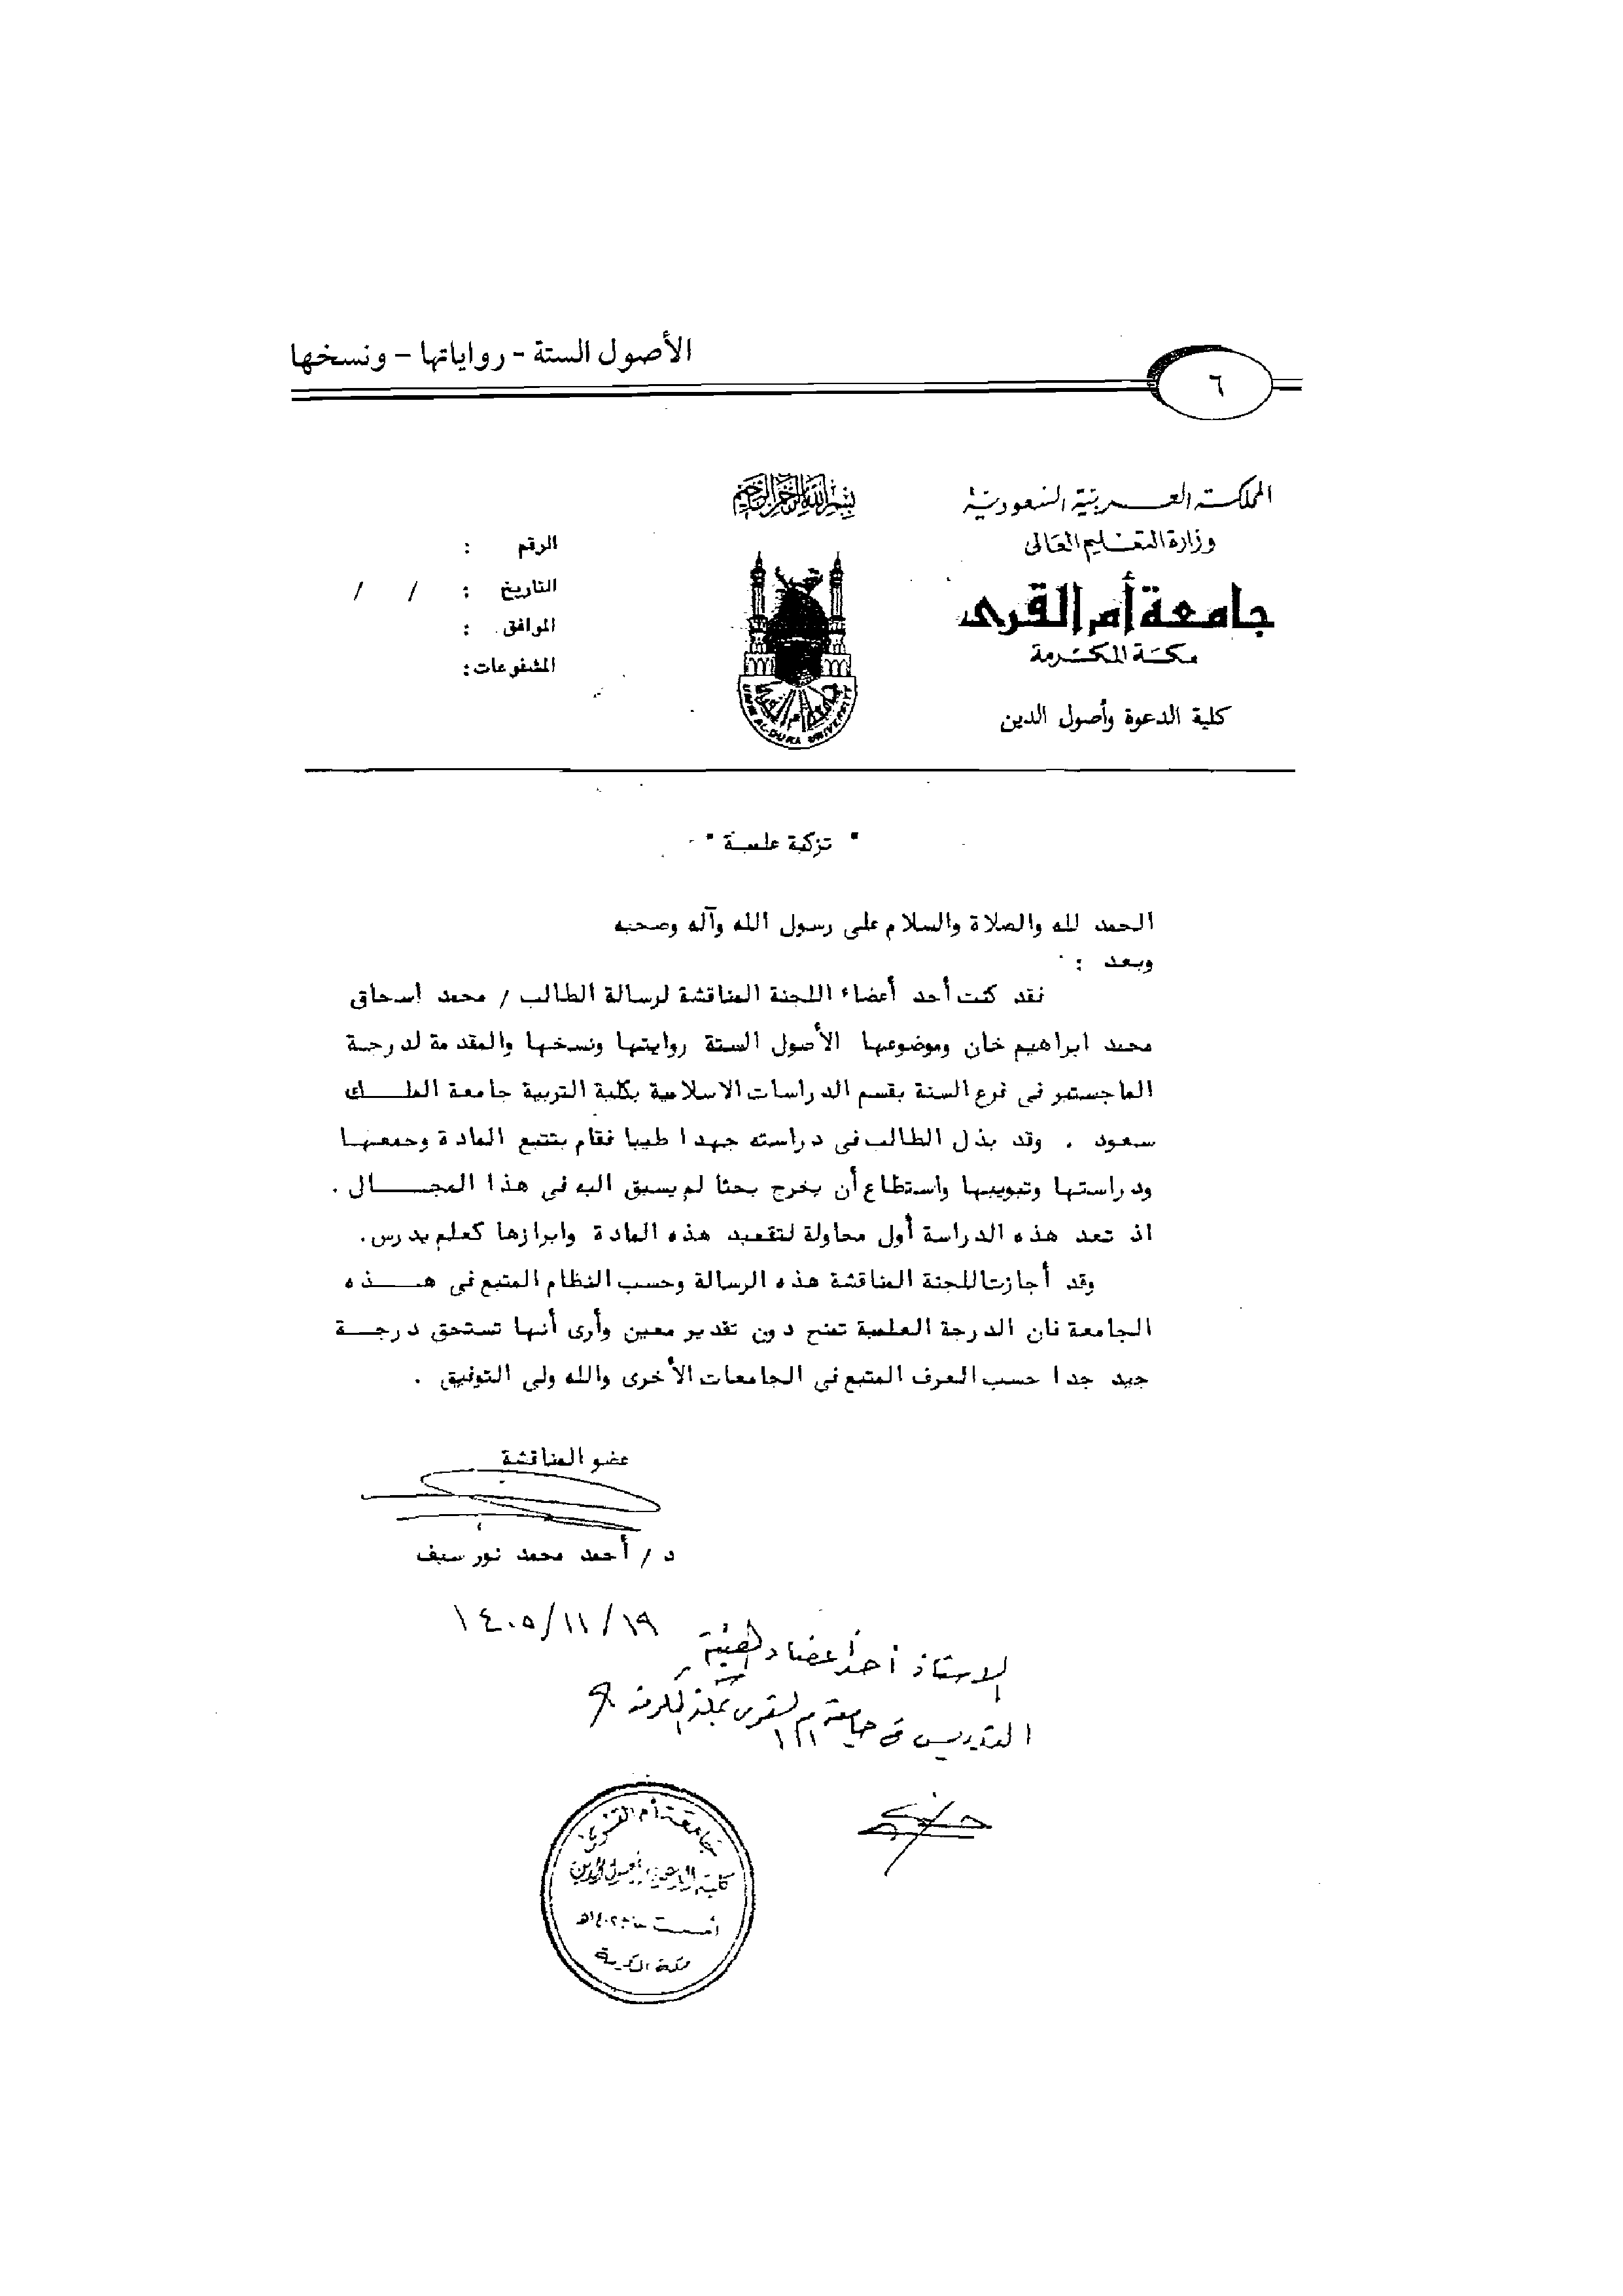 الأصول الستة - رواياتها - ونسخها
٦
المملكة العربية السعودية
وزارة التعليم العالى
جامعة أم القرى
مكة المكرمة
كلية الدعوة وأصول الدين
بسم الله الرحمن الرحيم
UMM AL-QURA UNIVERSITY
الرقم :
التاريخ : / /
الموافق :
المشفوعات :
" تزكية علمية "
الحمد لله والصلاة والسلام على رسول الله وآله وصحبه
وبعد :
فقد كنت أحد أعضاء اللجنة المناقشة لرسالة الطالب / محمد اسحاق
محمد ابراهيم خان وموضوعها الأصول الستة روايتها ونسخها والمقدمة لدرجة
الماجستير فى فرع السنة بقسم الدراسات الاسلامية بكلية التربية جامعة الملك
سعود . وقد بذل الطالب فى دراسته جهدا طيبا فقام بتتبع المادة وجمعها
ودراستها وتبويبها واستطاع أن يخرج بحثا لم يسبق اليه فى هذا المجال .
اذ تعد هذه الدراسة أول محاولة لتقعيد هذه المادة وابرازها كعلم يدرس .
وقد أجازت اللجنة المناقشة هذه الرسالة وحسب النظام المتبع فى هذه
الجامعة فان الدرجة العلمية تمنح دون تقدير معين وأرى أنها تستحق درجة
جيد جدا حسب العرف المتبع فى الجامعات الأخرى والله ولى التوفيق .
عضو المناقشة
د / أحمد محمد نور سيف
١٤٠٥/١١/١٩
الاستاذ أحد أعضاء هيئة
التدريس فى جامعة أم القرى بمكة المكرمة
جامعة أم القرى
كلية الدعوة وأصول الدين
مكة المكرمة